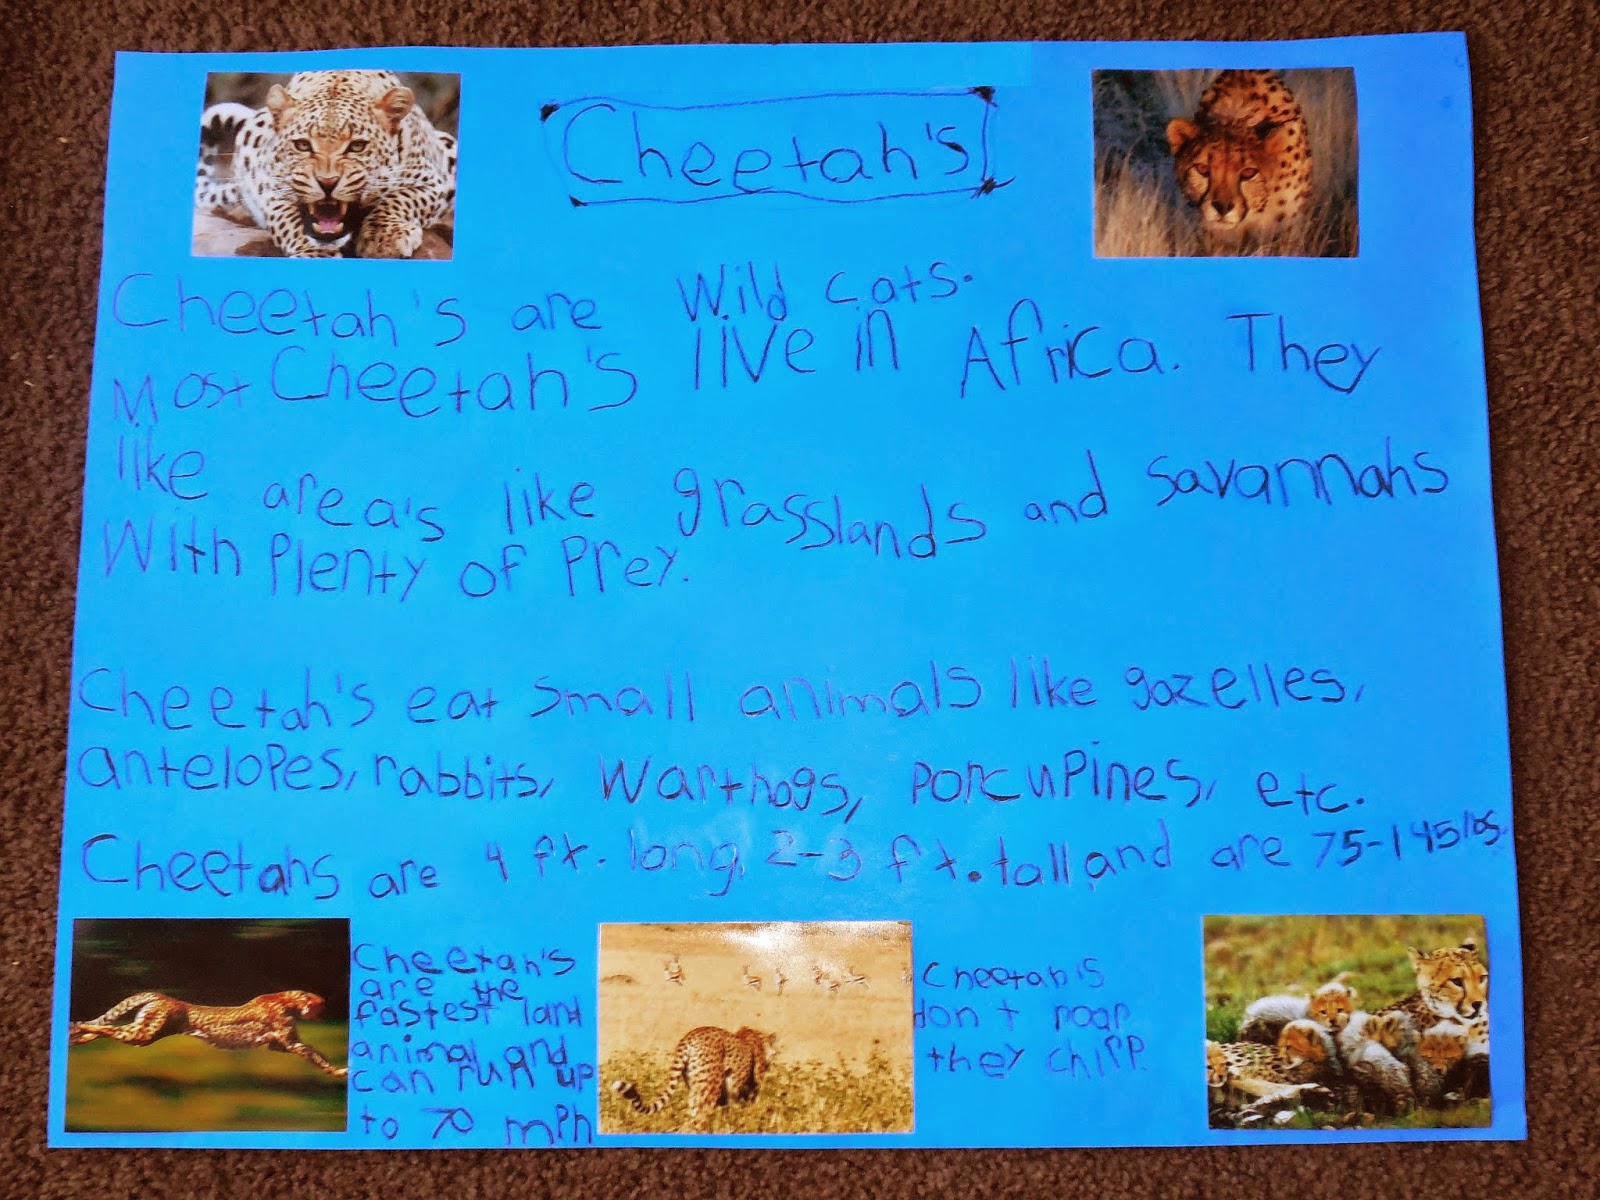 Cheetah's
Cheetah's are Wild cats.
Most Cheetah's live in Africa. They
like area's like grasslands and savannahs
With Plenty of Prey.
Cheetah's eat small animals like gazelles,
antelopes, rabbits, warthogs, porcupines, etc.
Cheetahs are 4 ft. long, 2-3 ft. tall, and are 75-145 lbs.
Cheetah's
are the
fastest land
animal and
can run up
to 70 mph
Cheetah's
don't roar
they chirp.